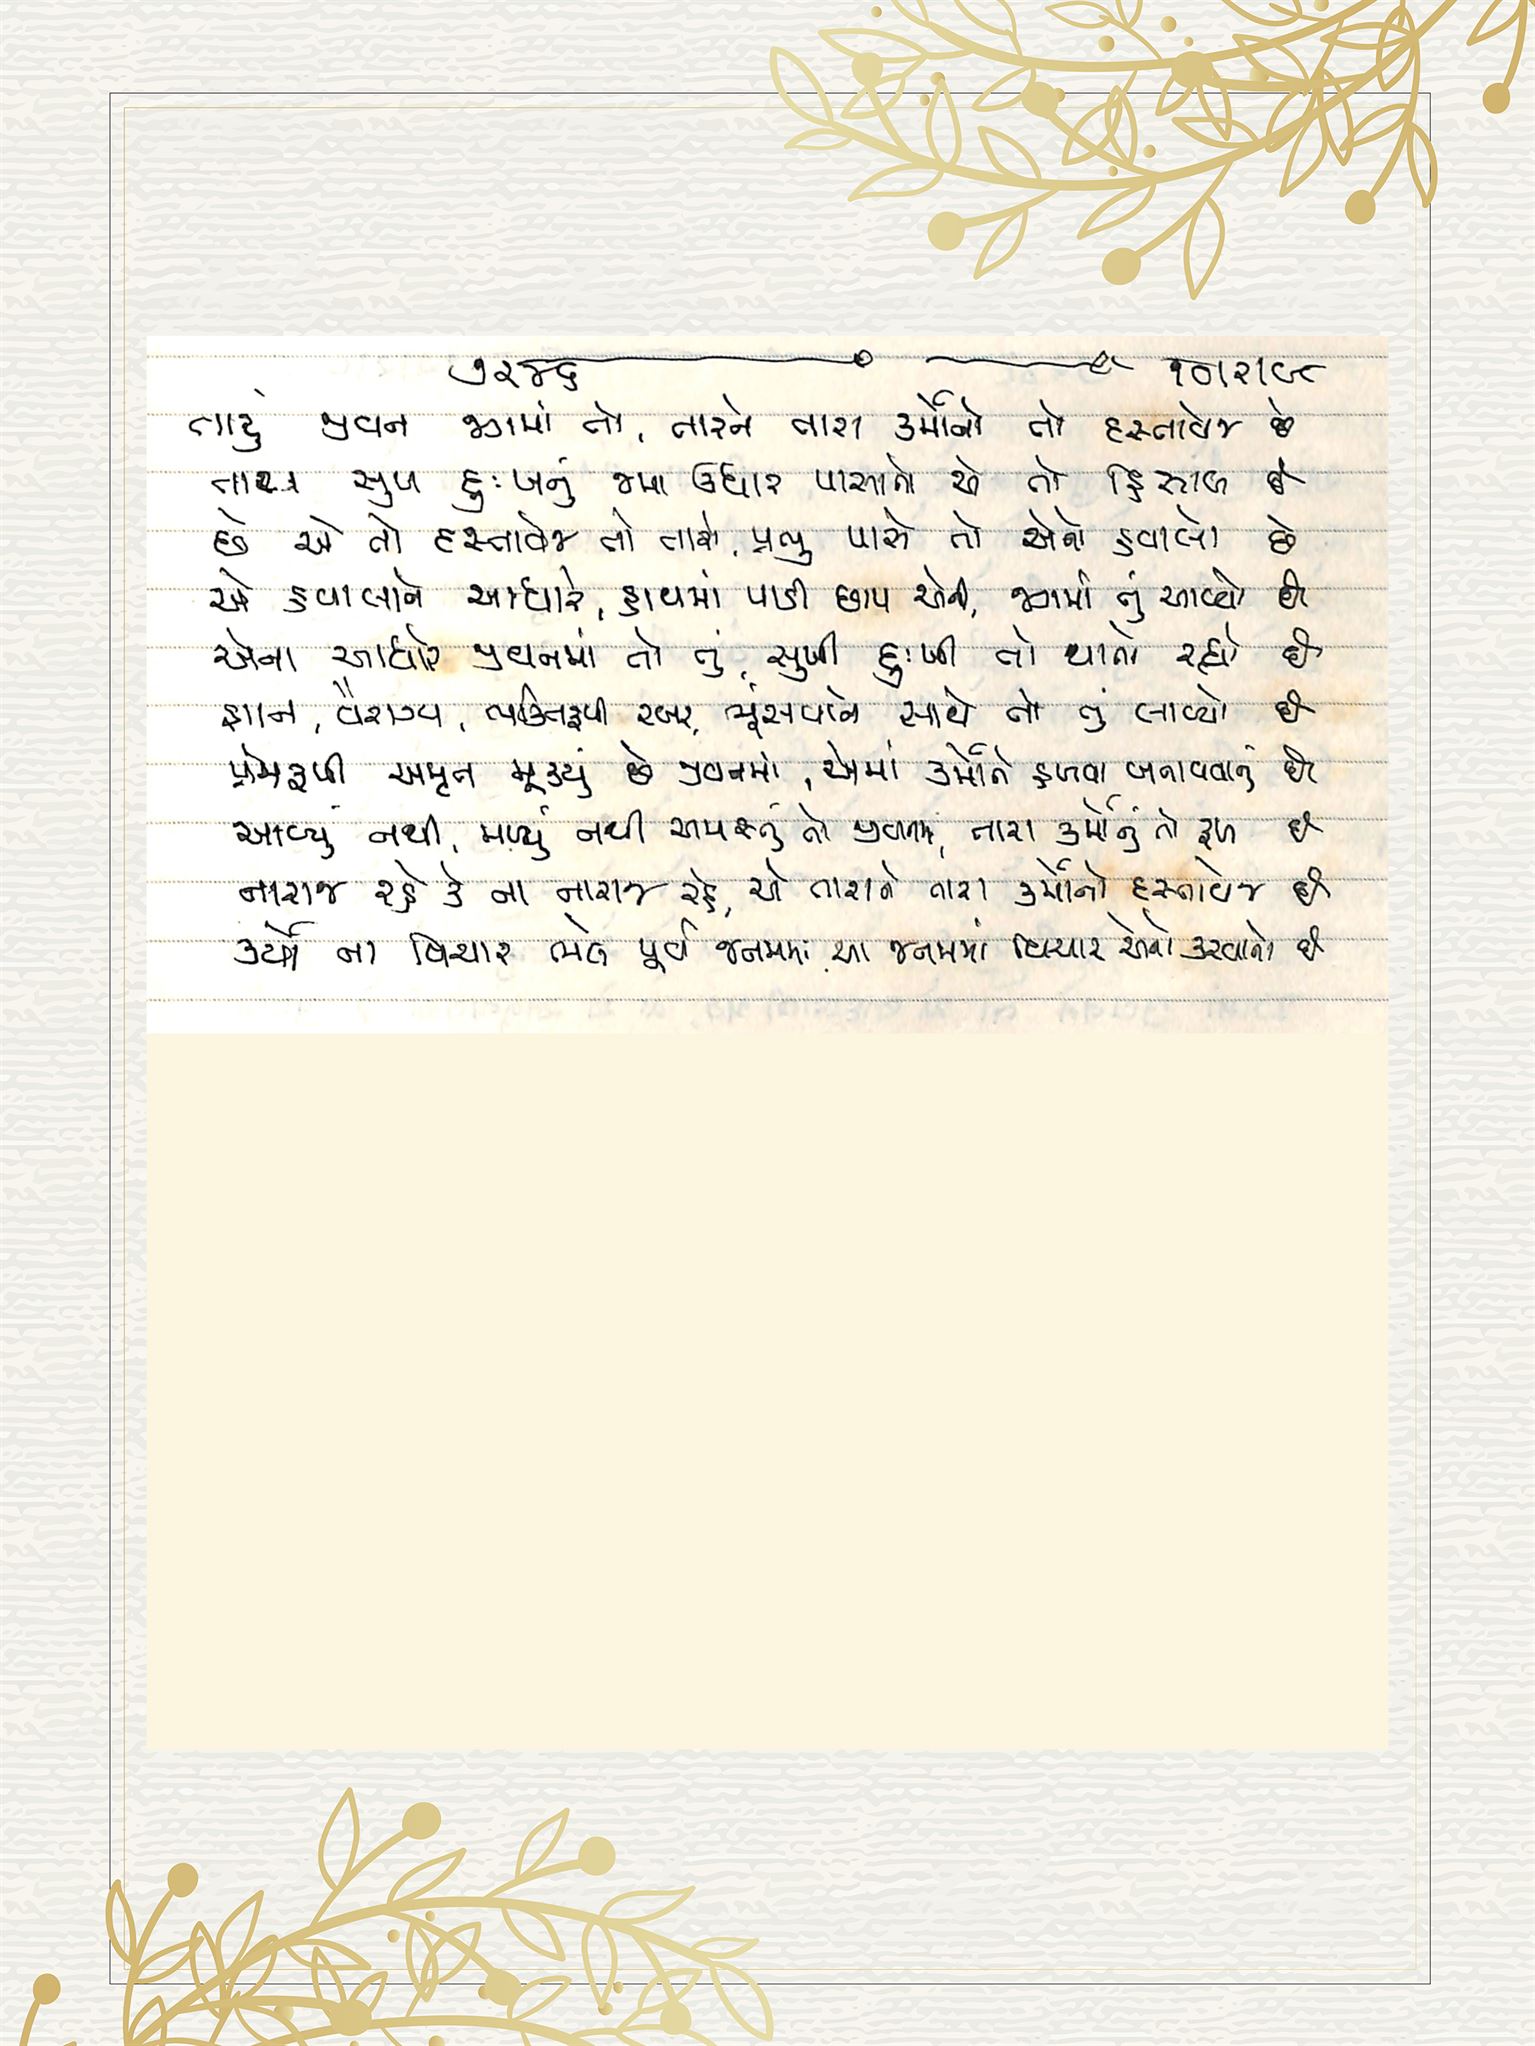 ૭૨૪૬ ૧૦।૨।૯૮
તારું જીવન જગમાં તો, તારને તારા કર્મોનો તો દસ્તાવેજ છે
તારા સુખ દુઃખનું જમા ઉધાર પાસાનો એ તો હિસાબ છે
છે એ તો દસ્તાવેજ તો તારો, પ્રભુ પાસે તો એનો હવાલો છે
એ હવાલાને આધારે, હાથમાં પાડી છાપ એની, જગમાં તું આવ્યો છે
એના આધારે જીવનમાં તો તું, સુખી દુઃખી તો થાતો રહ્યો છે
જ્ઞાન, વૈરાગ્ય, ભક્તિરૂપી રબર, ભૂંસવાને સાથે તો તું લાવ્યો છે
પ્રેમરૂપી અમૃત મૂક્યું છે જીવનમાં, એમાં કર્મોને હળવા બનાવવાનું છે
આવ્યું નથી, મળ્યું નથી અમસ્તું તો જીવનમાં, તારા કર્મોનું તો ફળ છે
નારાજ રહે કે ના નારાજ રહે, એ તારાને તારા કર્મોનો દસ્તાવેજ છે
કર્યો ના વિચાર ભલે પૂર્વ જનમમાં આ જનમમાં વિચાર એનો કરવાનો છે